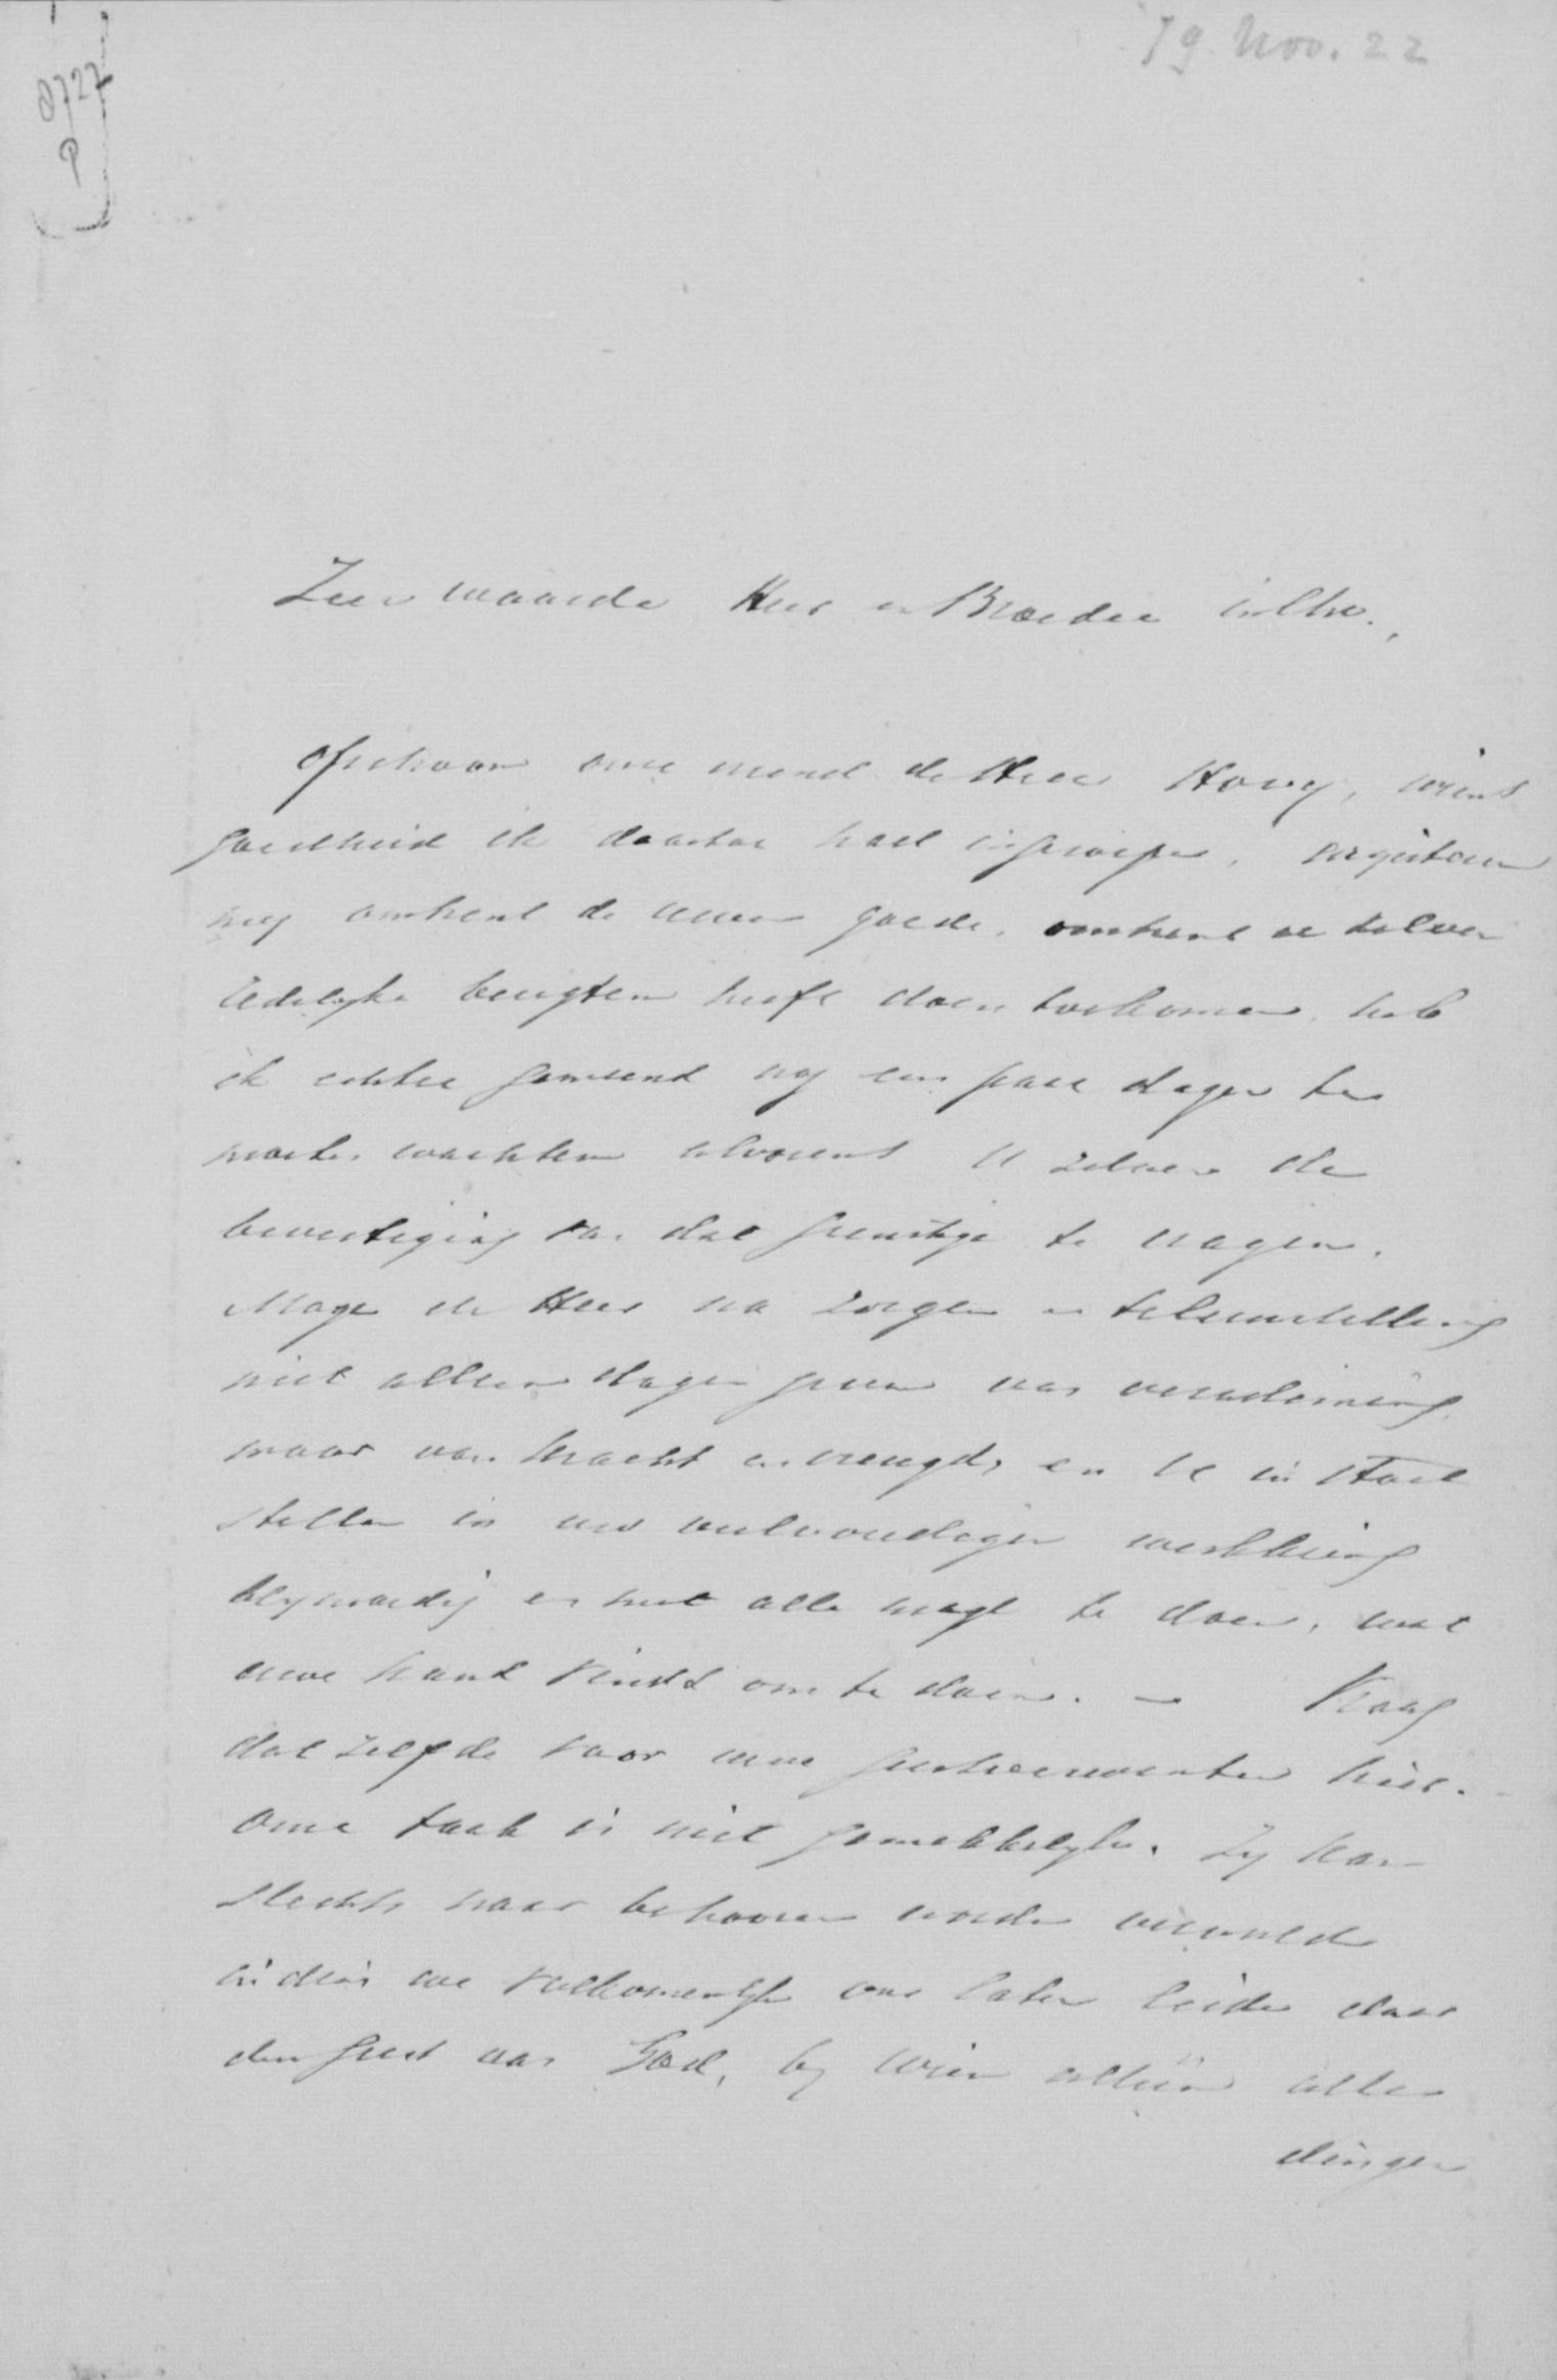 79 Nov. 22
8727
P
Zeer waarde Heer en Broeder in Chr.,
Ofschoon onze vriend de Heer Hovy, wiens
goedheid ik daartoe had ingeroepen, eergisteren
mij omtrent de uwen goede, omtrent u zelven
redelijke berigten heeft doen toekomen, heb
ik echter gemeend nog een paar dagen te
moeten wachten alvorens U zelven de
bevestiging van dat gunstige te vragen.
Moge de Heer na zorgen en teleurstelling
niet alleen dagen geven van verademing
maar van kracht en vreugde, en U in staat
stellen in uw veelvoudigen werkkring
blijmoedig en met alle magt te doen, wat
uwe hand vindt om te doen. — Vraag
dat zelfde voor uwe geestverwanten hier.
Onze taak is niet gemakkelijk. Zij kan
slechts naar behooren worden vervuld
indien we volkomenlijk ons laten leiden door
den geest van God, bij wien alleen alle
dingen